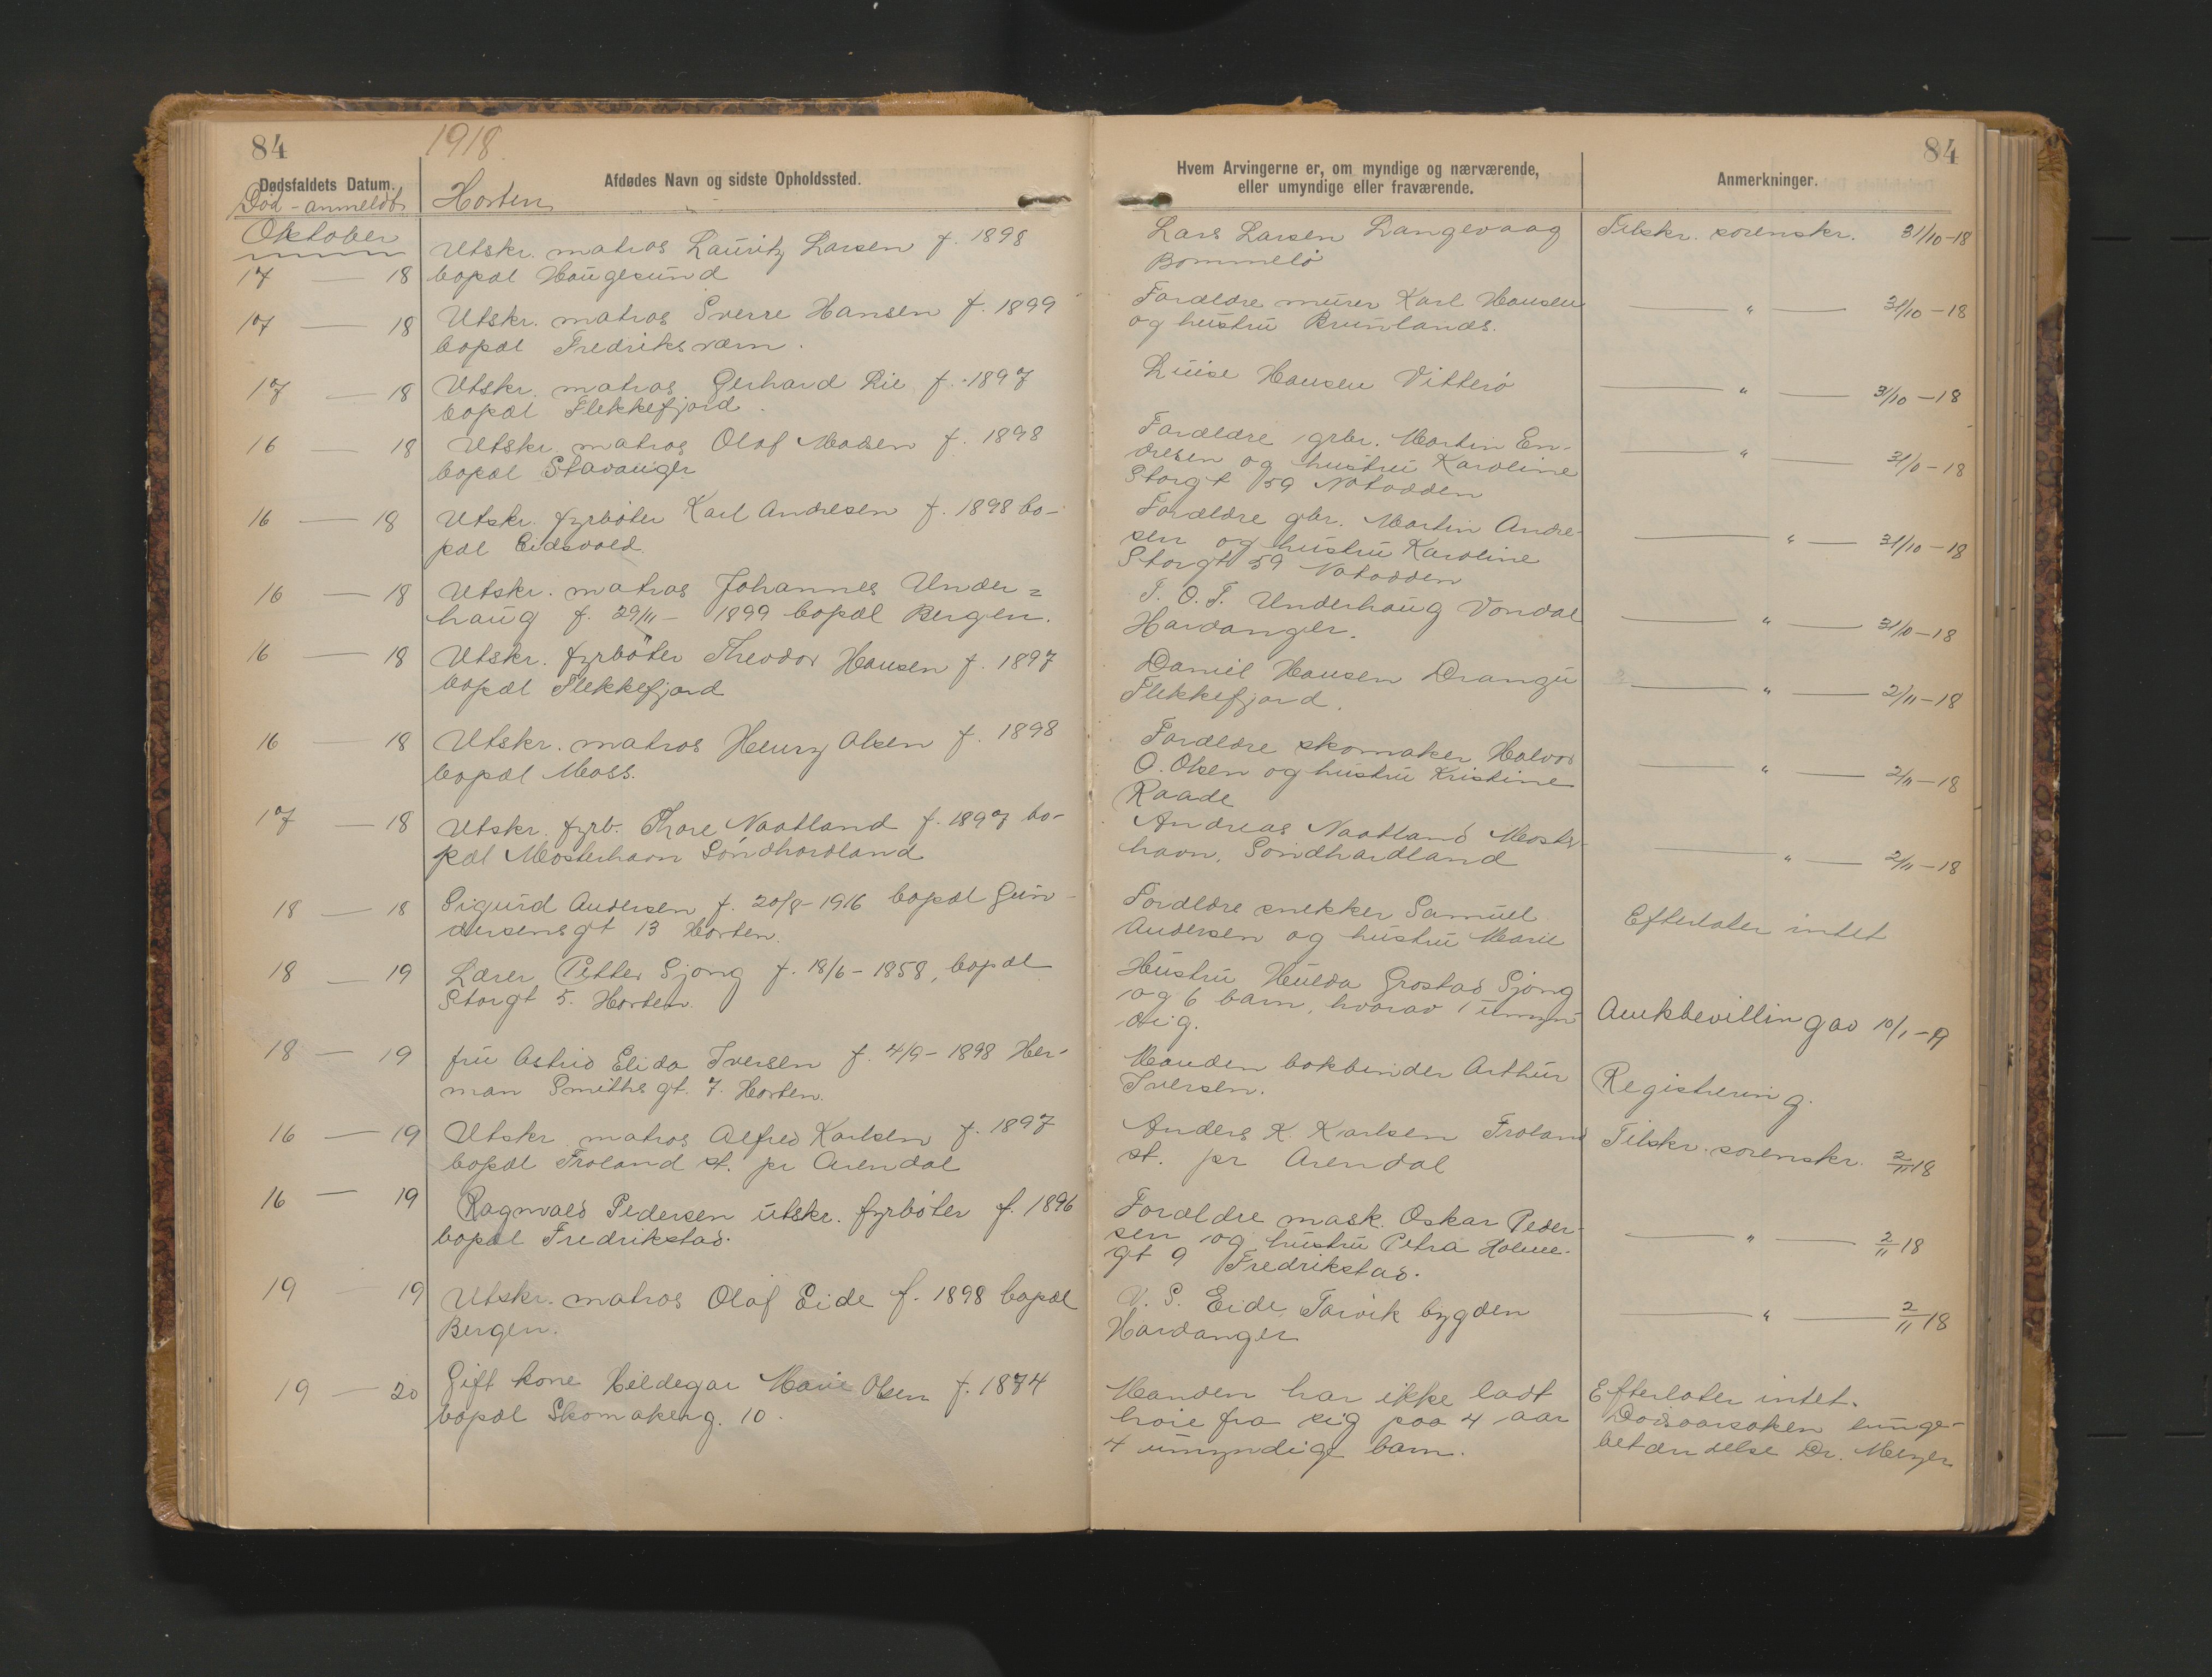 84
1918.
84
Dødsfaldets Datum.
Afdødes Navn og sidste Opholdssted.
Hvem Arvingerne er, om myndige og nærværende,
eller umyndige eller fraværende.
Anmerkninger.
Død - anmeldt
Horten
Oktober
17 — 18
Utskr. matros Lauritz Larsen f. 1898
bopæl Haugesund
Lars Larsen Langevaag
Bommelö
Tilskr. sorenskr. 31/10-18
17 — 18
Utskr. matros Sverre Hansen f. 1899
bopæl Fredriksværn.
Forældre murer Karl Hansen
og hustru Brunlanes.
— " — 31/10-18
17 — 18
Utskr. matros Gerhard Lie f. 1897
bopæl Flekkefjord.
Luise Hansen Vitterö
— " — 31/10-18
16 — 18
Utskr. matros Olaf Madsen f. 1898
bopæl Stavanger
Forældre grbr. Martin En-
dresen og hustru Karoline
Storgt 59 Notodden
— " — 31/10-18
16 — 18
Utskr. fyrböter Karl Andresen f. 1898 bo-
pæl Eidsvold.
Forældre gbr. Martin Andre-
sen og hustru Karoline
Storgt 59 Notodden
— " — 31/10-18
16 — 18
Utskr. matros Johannes Under=
haug f. 29/11- 1899 bopæl Bergen.
T. O. T. Underhaug Vondal
Hardanger.
— " — 31/10-18
16 — 18
Utskr. fyrböter Theodor Hansen f. 1897
bopæl Flekkefjord
Daniel Hansen
Flekkefjord.
— " — 2/11-18
16 — 18
Utskr. matros Henry Olsen f. 1898
bopæl Moss.
Forældre skomaker Halvor
O. Olsen og hustru Kristine
Raade
— " — 2/11-18
17 — 18
Utskr. fyrb. Thore Naatland f. 1897 bo-
pæl Mosterhavn Söndhordland
Andreas Naatland Moster-
havn, Söndhardland
— " — 2/11-18
18 — 18
Sigurd Andersen f. 20/8-1916 bopæl Gun-
dersensgt 13 Horten.
Forældre snekker Samuel
Andersen og hustru Marie
Efterlater intet
18 — 19
Lærer Petter Sjong f. 18/6-1858, bopæl
Storgt 5. Horten.
Hustru Hulda Grostad Sjong
og 6 barn, hvorav 1 umyn-
dig.
Amtsbevilling av 10/1-19
18 — 19
fru Astrid Elida Iversen f. 4/9-1898 Her-
man Smithsgt. 7. Horten.
Manden bokbinder Arthur
Iversen.
Registrering.
16 — 19
Utskr. matros Alfred Karlsen f. 1897
bopæl Froland st. pr Arendal
Anders K. Karlsen Froland
st. pr Arendal
Tilskr. sorenskr. 2/11 18
16 — 19
Ragnvald Pedersen utskr. fyrböter f. 1896
bopæl Fredrikstad.
Forældre mask. Oskar Peder-
sen og hustru Petra Holme-
gt 9 Fredrikstad.
— " — 2/11 18
19 — 19
Utskr. matros Olaf Eide f. 1898 bopæl
Bergen.
V. S. Eide, Torvik bygden
Hardanger
— " — 2/11 18
19 — 20
Gift kone Hildegar Marie Olsen f. 1874
bopæl Skomakerg. 10.
Manden har ikke ladt
höre fra sig paa 4 aar
4 umyndige barn.
Efterlater intet.
Dødsaarsaken lunge-
betændelse Dr. Meyer